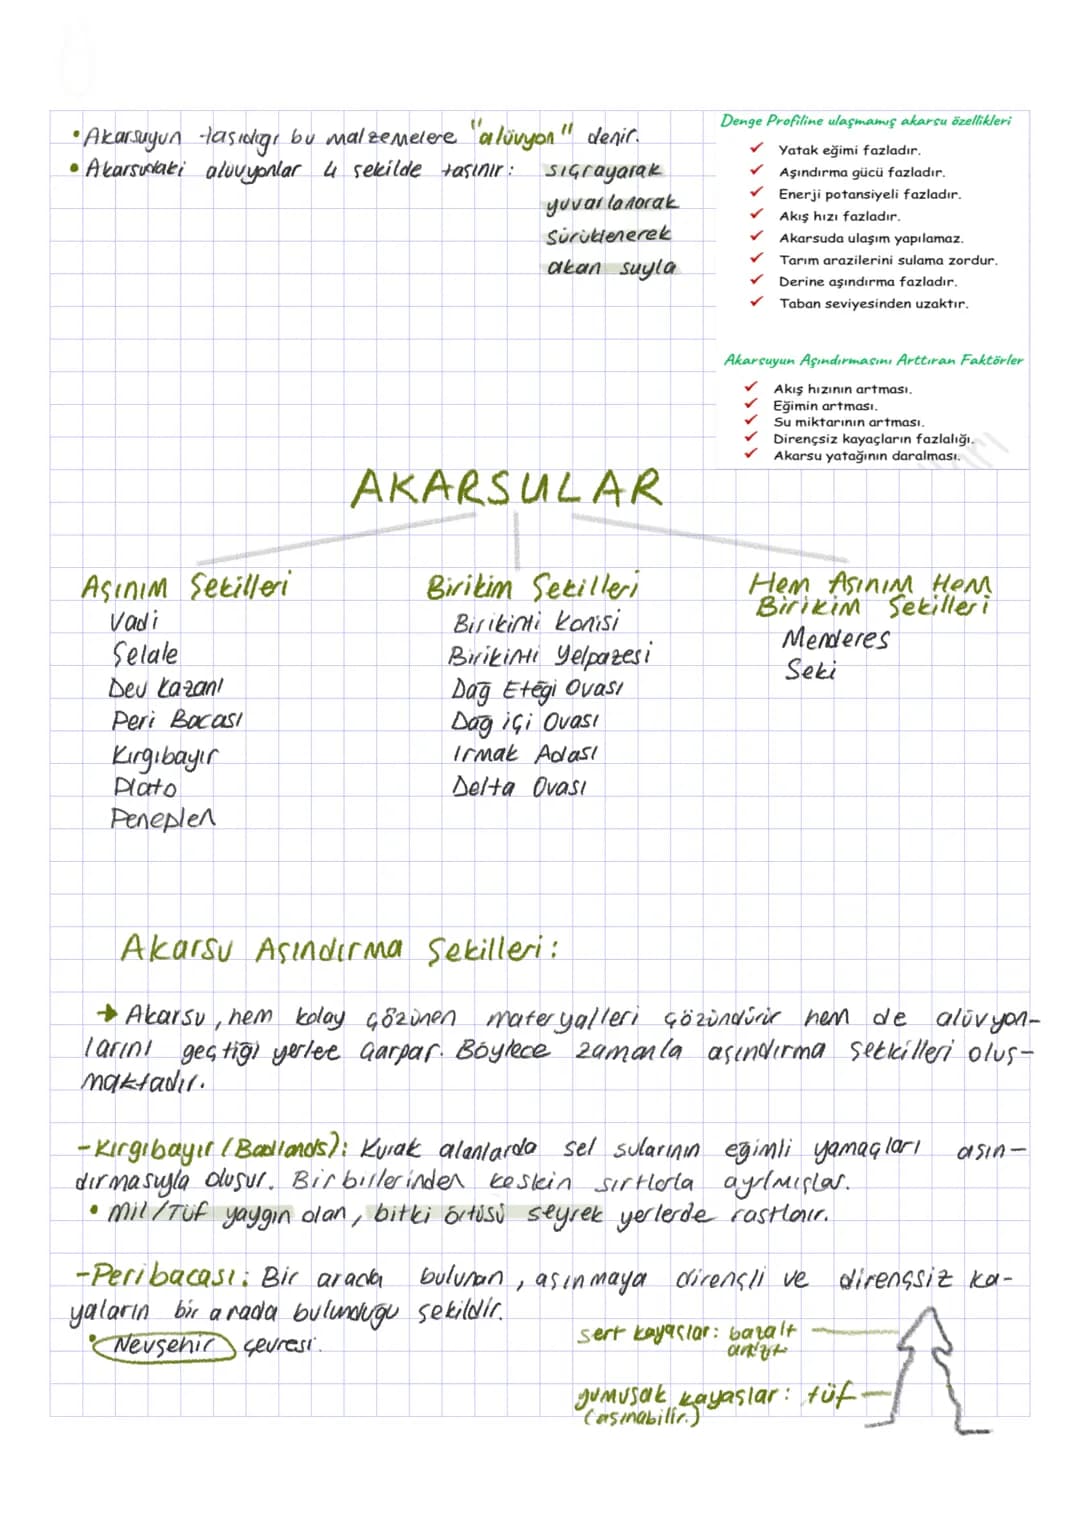 • Akarsuyun taşıdığı bu malzemelere "alüvyon" denir.
• Akarsudaki alüvyonlar 4 şekilde taşınır: sıçrayarak
yuvarlanarak
sürüklenerek
akan suyla
Denge Profiline ulaşmamış akarsu özellikleri
✓ Yatak eğimi fazladır.
✓ Aşındırma gücü fazladır.
✓ Enerji potansiyeli fazladır.
✓ Akış hızı fazladır.
✓ Akarsuda ulaşım yapılamaz.
✓ Tarım arazilerini sulama zordur.
✓ Derine aşındırma fazladır.
✓ Taban seviyesinden uzaktır.
Akarsuyun Aşındırmasını Arttıran Faktörler
✓ Akış hızının artması.
✓ Eğimin artması.
✓ Su miktarının artması.
✓ Dirençsiz kayaçların fazlalığı.
✓ Akarsu yatağının daralması.
AKARSULAR
Aşınım Şekilleri
Vadi
Şelale
Dev Kazanı
Peri Bacası
Kırgıbayır
Plato
Peneplen
Birikim Şekilleri
Birikinti Konisi
Birikinti Yelpazesi
Dağ Eteği Ovası
Dağ içi Ovası
Irmak Adası
Delta Ovası
Hem Aşınım Hem
Birikim Şekilleri
Menderes
Seki
Akarsu Aşındırma Şekilleri:
→ Akarsu, hem kolay çözünen materyalleri çözündürür hem de alüvyon-
larını geçtiği yerlee çarpar. Böylece zamanla aşındırma şekkilleri oluş-
maktadır.
-Kırgıbayır (Badlands): Kurak alanlarda sel sularının eğimli yamaçları aşın-
dırmasıyla oluşur. Birbirlerinden keskin sırtlarla ayrılmışlar.
• Mil/Tüf yaygın olan, bitki örtüsü seyrek yerlerde rastlanır.
-Peribacası: Bir arada bulunan, aşınmaya dirençli ve dirençsiz ka-
yaların bir arada bulunduğu şekildir.
• Nevşehir çevresi.
sert kayaçlar: bazalt
andzit
yumuşak kayaşlar: tüf
(aşınabilir.)